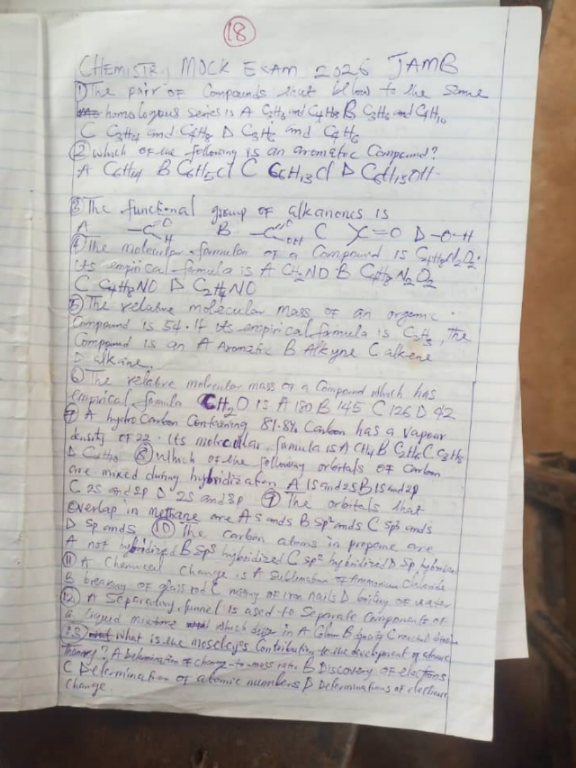 18
CHEMISTRY MOCK EXAM 2026 JAMB
① The pair of Compounds that belong to the same
homologous series is A C₂H₆ and C₄H₈ B C₃H₈ and C₄H₁₀
C and C₄H₈ D C₃H₆ and C₄H₆
② which of the following is an aromatic Compound?
A B C₆H₅Cl C C₆H₁₃Cl D C₆H₁₃OH
③ The functional group of alkanones is
A -C O H B -C O OH C C=O D -O-H
④ The molecular formular of a Compound is C₄H₈N₂O₂.
its empirical formula is A CH₂NO B C₄H₈N₂O₂
C C₄H₈NO D C₂H₄NO
⑤ The relative molecular mass of an organic
Compound is 54. If its empirical formula is the
Compound is an A Aromatic B Alkyne C alkene
D alkane.
⑥ The relative molecular mass of a Compound which has
empirical formula CH₂O is A 180 B 145 C 126 D 42
⑦ A hydro Carbon Containing 81.8% Carbon has a vapour
density of 22. Its molecular formula is A CH₄ B C₂H₆ C C₃H₈
D ⑧ Which of the following orbitals of Carbon
are mixed during hybridization A 1s and 2s B 1s and 2p
C 2s and 2p D 2s and 3p ⑨ The orbitals that
overlap in methane are A s and s B sp² and s C sp³ and s
D sp and s ⑩ The carbon atoms in propane are
A not hybridized B sp³ hybridized C sp² hybridized D sp hybridized
⑪ A Chemical Change is A sublimation of Ammonium Chloride
B breaking of glass rod C rusting of iron nails D boiling of water
⑫ A Separating funnel is used to Separate Components of
liquid mixture which differ in A Colour B density C
⑬ What is the moseley's Contribution to the development of atomic
theory? A Determination of charge-to-mass ratio B Discovery of electrons
C Determination of atomic numbers D Determinations of electronic
Change.